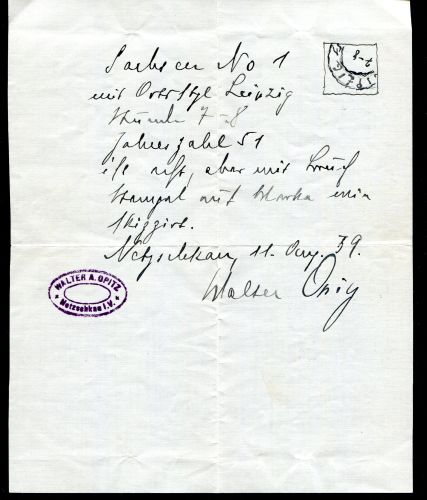 Sachsen No 1
mit Ortsstpl Leipzig
Stunde 7-8
Jahreszahl 51
ist echt, aber mit
Stempel auf Marke wie
skizziert.
Netzschkau, 11. Aug. 39.
Walter Opitz
WALTER A. OPITZ
Netzschkau i.V.
LEIPZIG
7-8